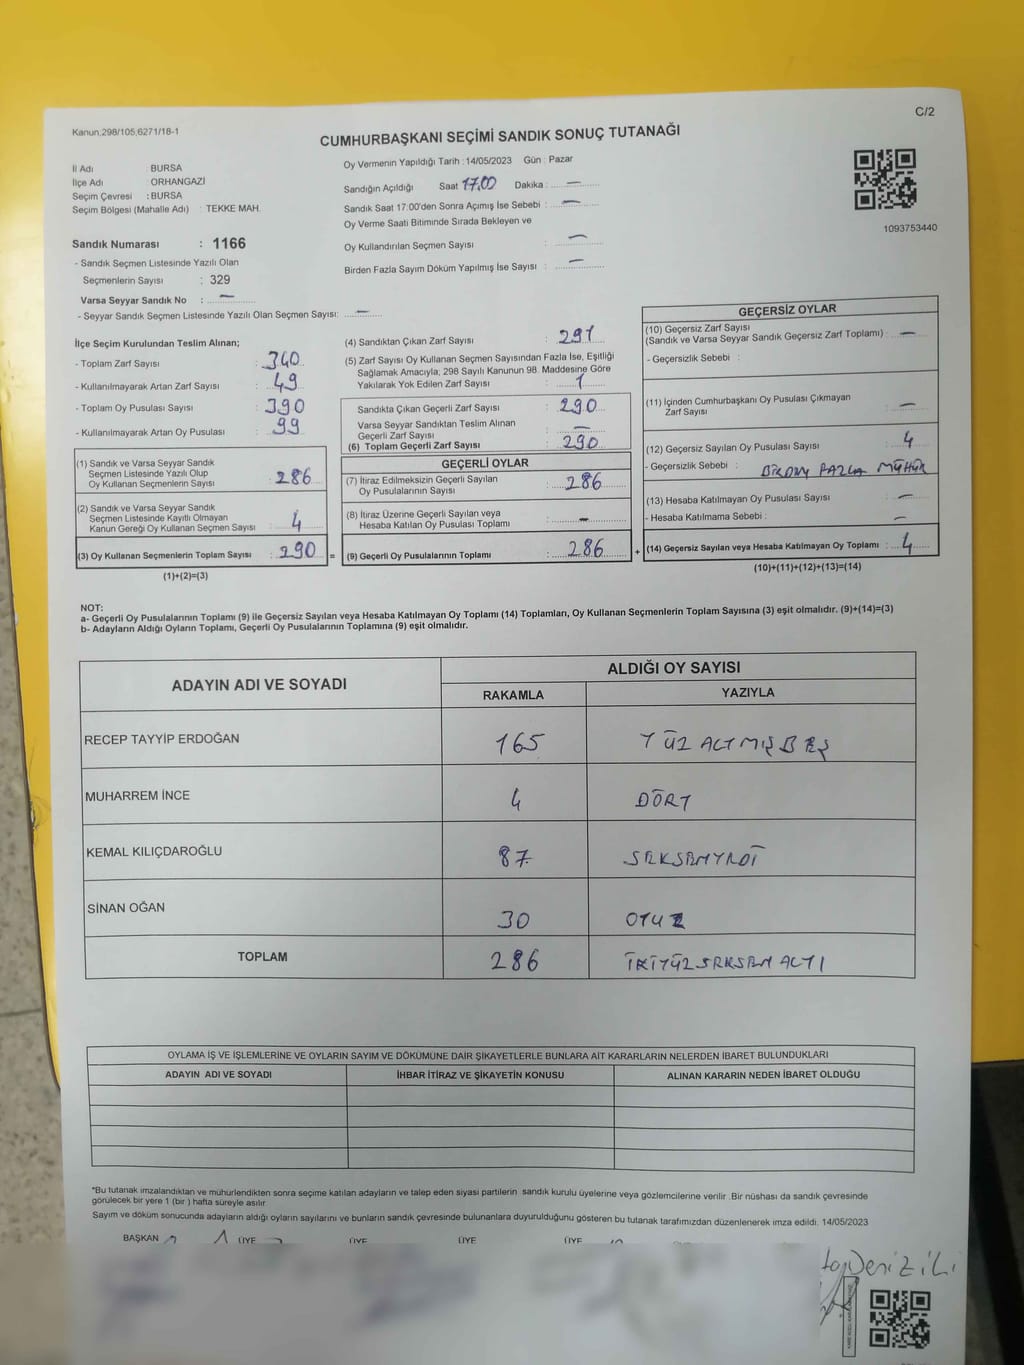 C/2
Kanun.298/105;6271/18-1
CUMHURBAŞKANI SEÇİMİ SANDIK SONUÇ TUTANAĞI
İl Adı BURSA
İlçe Adı : ORHANGAZİ
Seçim Çevresi : BURSA
Seçim Bölgesi (Mahalle Adı) : TEKKE MAH.
Sandık Numarası : 1166
- Sandık Seçmen Listesinde Yazılı Olan
Seçmenlerin Sayısı : 329
Varsa Seyyar Sandık No : —
- Seyyar Sandık Seçmen Listesinde Yazılı Olan Seçmen Sayısı: —
Oy Vermenin Yapıldığı Tarih : 14/05/2023 Gün : Pazar
Sandığın Açıldığı Saat 17.00 Dakika : —
Sandık Saat 17:00'den Sonra Açımış İse Sebebi : —
Oy Verme Saati Bitiminde Sırada Bekleyen ve
Oy Kullandırılan Seçmen Sayısı : —
Birden Fazla Sayım Döküm Yapılmış İse Sayısı : —
1093753440
İlçe Seçim Kurulundan Teslim Alınan;
- Toplam Zarf Sayısı : 340
- Kullanılmayarak Artan Zarf Sayısı : 49
- Toplam Oy Pusulası Sayısı : 390
- Kullanılmayarak Artan Oy Pusulası : 99
(1) Sandık ve Varsa Seyyar Sandık
Seçmen Listesinde Yazılı Olup
Oy Kullanan Seçmenlerin Sayısı : 286
(2) Sandık ve Varsa Seyyar Sandık
Seçmen Listesinde Kayıtlı Olmayan
Kanun Gereği Oy Kullanan Seçmen Sayısı : 4
(3) Oy Kullanan Seçmenlerin Toplam Sayısı : 290 =
(1)+(2)=(3)
(4) Sandıktan Çıkan Zarf Sayısı : 291
(5) Zarf Sayısı Oy Kullanan Seçmen Sayısından Fazla İse, Eşitliği
Sağlamak Amacıyla; 298 Sayılı Kanunun 98. Maddesine Göre
Yakılarak Yok Edilen Zarf Sayısı : 1
Sandıkta Çıkan Geçerli Zarf Sayısı : 290
Varsa Seyyar Sandıktan Teslim Alınan
Geçerli Zarf Sayısı : —
(6) Toplam Geçerli Zarf Sayısı : 290
GEÇERLİ OYLAR
(7) İtiraz Edilmeksizin Geçerli Sayılan
Oy Pusulalarının Sayısı : 286
(8) İtiraz Üzerine Geçerli Sayılan veya
Hesaba Katılan Oy Pusulası Toplamı : —
(9) Geçerli Oy Pusulalarının Toplamı : 286 +
GEÇERSİZ OYLAR
(10) Geçersiz Zarf Sayısı
(Sandık ve Varsa Seyyar Sandık Geçersiz Zarf Toplamı) : —
- Geçersizlik Sebebi :
(11) İçinden Cumhurbaşkanı Oy Pusulası Çıkmayan
Zarf Sayısı : —
(12) Geçersiz Sayılan Oy Pusulası Sayısı : 4
- Geçersizlik Sebebi : BİRDEN FAZLA MÜHÜR
(13) Hesaba Katılmayan Oy Pusulası Sayısı : —
- Hesaba Katılmama Sebebi : —
(14) Geçersiz Sayılan veya Hesaba Katılmayan Oy Toplamı : 4
(10)+(11)+(12)+(13)=(14)
NOT:
a- Geçerli Oy Pusulalarının Toplamı (9) ile Geçersiz Sayılan veya Hesaba Katılmayan Oy Toplamı (14) Toplamları, Oy Kullanan Seçmenlerin Toplam Sayısına (3) eşit olmalıdır. (9)+(14)=(3)
b- Adayların Aldığı Oyların Toplamı, Geçerli Oy Pusulalarının Toplamına (9) eşit olmalıdır.
ADAYIN ADI VE SOYADI ALDIĞI OY SAYISI
RAKAMLA YAZIYLA
RECEP TAYYİP ERDOĞAN 165 YÜZ ALTMIŞ BEŞ
MUHARREM İNCE 4 DÖRT
KEMAL KILIÇDAROĞLU 87 SEKSENYEDİ
SİNAN OĞAN 30 OTUZ
TOPLAM 286 İKİYÜZ SEKSEN ALTI
OYLAMA İŞ VE İŞLEMLERİNE VE OYLARIN SAYIM VE DÖKÜMÜNE DAİR ŞİKAYETLERLE BUNLARA AİT KARARLARIN NELERDEN İBARET BULUNDUKLARI
ADAYIN ADI VE SOYADI İHBAR İTİRAZ VE ŞİKAYETİN KONUSU ALINAN KARARIN NEDEN İBARET OLDUĞU
*Bu tutanak imzalandıktan ve mühürlendikten sonra seçime katılan adayların ve talep eden siyasi partilerin sandık kurulu üyelerine veya gözlemcilerine verilir .Bir nüshası da sandık çevresinde
görülecek bir yere 1 (bir ) hafta süreyle asılır
Sayım ve döküm sonucunda adayların aldığı oyların sayılarını ve bunların sandık çevresinde bulunanlara duyurulduğunu gösteren bu tutanak tarafımızdan düzenlenerek imza edildi. 14/05/2023
BAŞKAN ÜYE ÜYE ÜYE ÜYE